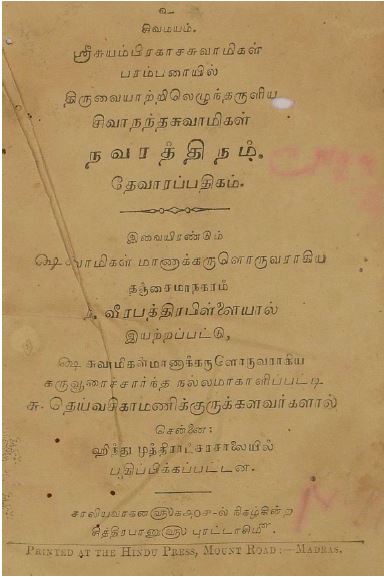 உ
சிவமயம்.
ஸ்ரீசுயம்பிரகாசசுவாமிகள்
பரம்பரையில்
திருவையாற்றிலெழுந்தருளிய
சிவாநந்தசுவாமிகள்
நவரத்தினம்.
தேவாரப்பதிகம்.
இவையிரண்டும்
ஷ சுவாமிகள் மாணாக்கருளொருவராகிய
தஞ்சைமாநகரம்
வீரபத்திரபிள்ளையால்
இயற்றப்பட்டு,
ஷ சுவாமிகள்மாணாக்கருளோருவராகிய
கருவூரைச்சார்ந்த நல்லமாகாளிப்பட்டி
சு. தெய்வசிகாமணிக்குருக்களவர்களால்
சென்னை:
ஹிந்து முத்திராட்சரசாலையில்
பதிப்பிக்கப்பட்டன.
சாலியவாகன நிகழ்கின்ற
சித்திரபானு௵ புரட்டாசி௴
PRINTED AT THE HINDU PRESS, MOUNT ROAD:—MADRAS.